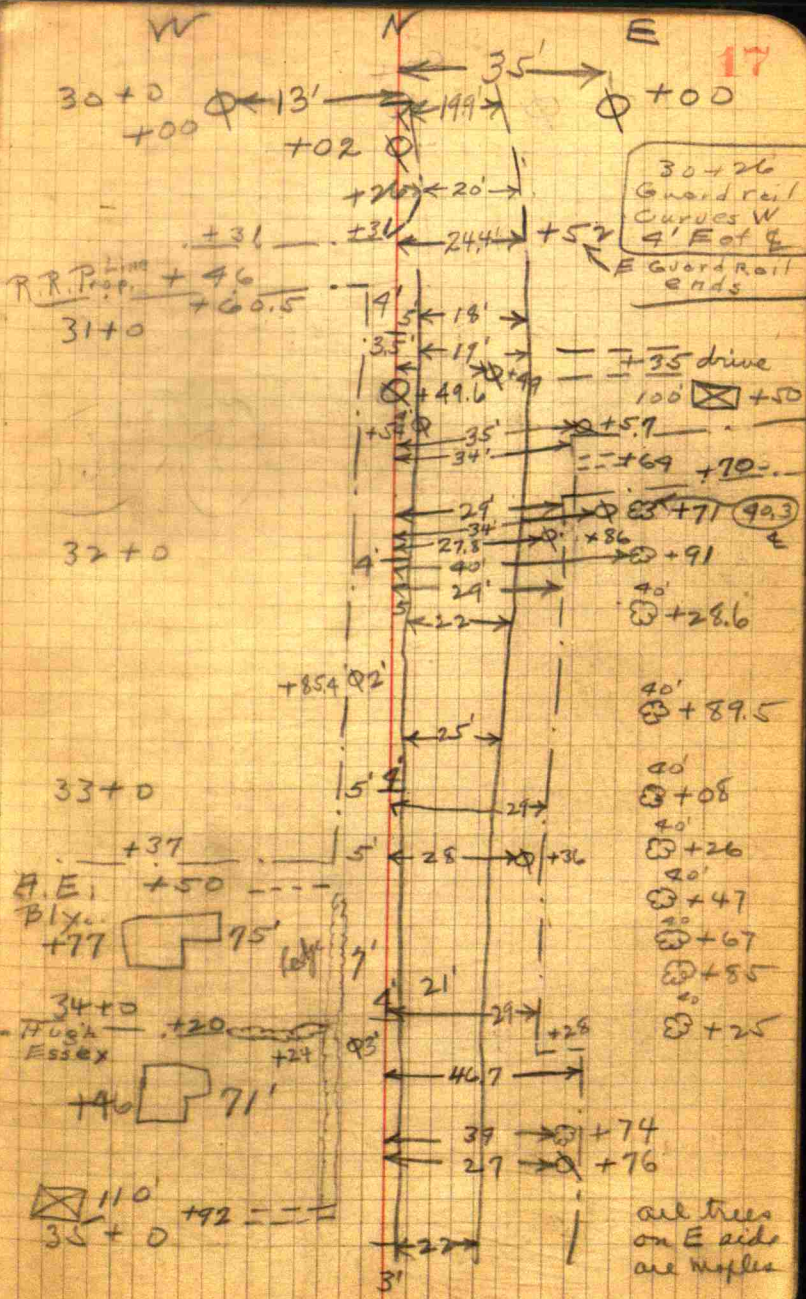 W N E
17
35'
30+0 13' 19.9' +00
+00
+02
30+26
Guard rail
Curves W
4' E of ℄
+26 20'
+31 +31 24.4' +52
E Guard Rail
ends
R.R. Prop. Line +46
+60.5 4'
31+0 5' 18'
3.5' 19' +35 drive
+49
+49.6 100' +50
35' +57
34' +64 +70
29' +71 40.3
℄
34'
27.8 +86
32+0 4' 40' +91
29' 40'
5 +28.6
22
+85.4 2' 40'
+89.5
25'
33+0 5' 4' 40'
+08
29
+37 5' 28 +36 40'
+26
A.E. +50 40'
+47
Blx.
+77 75' 7' 40'
+67
+85
34+0 4' 21' 29 40
+25
Hugh +20 +28
Essex +24 3'
46.7
+46 71'
39 +74
27 +76
110' +92
35+0 22
3'
all trees
on E side
are maples